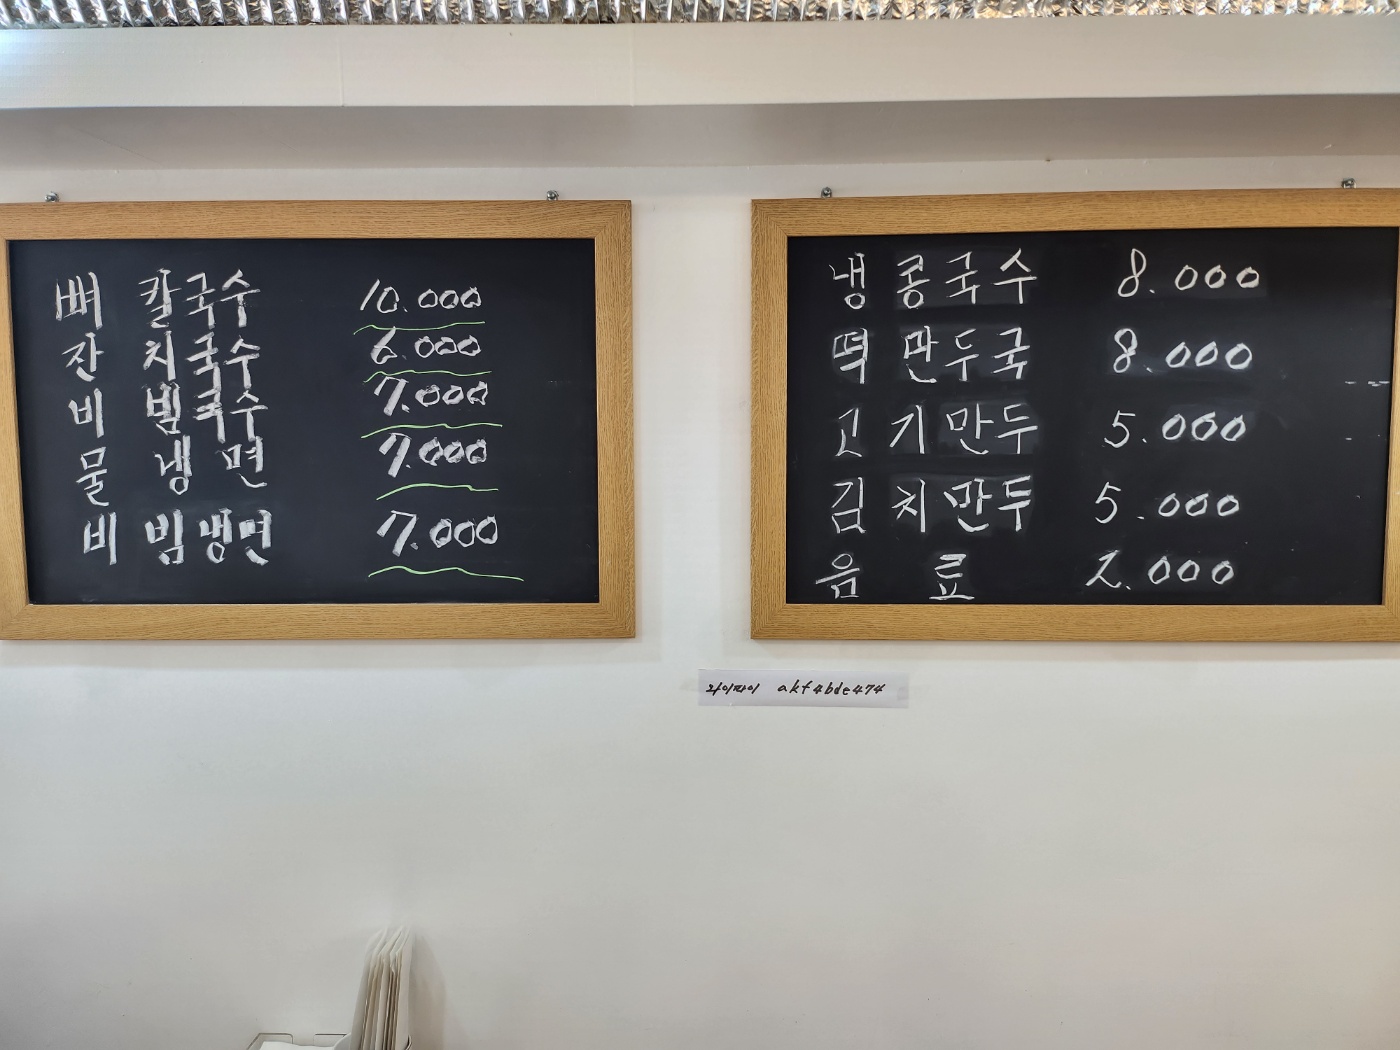 뼈 칼국수 10.000
잔 치국수 6.000
비 빔국수 7.000
물 냉 면 7.000
비 빔냉면 7.000
냉 콩국수 8.000
떡 만두국 8.000
고 기만두 5.000
김 치만두 5.000
음 료 2.000
와이파이 akf4bde474